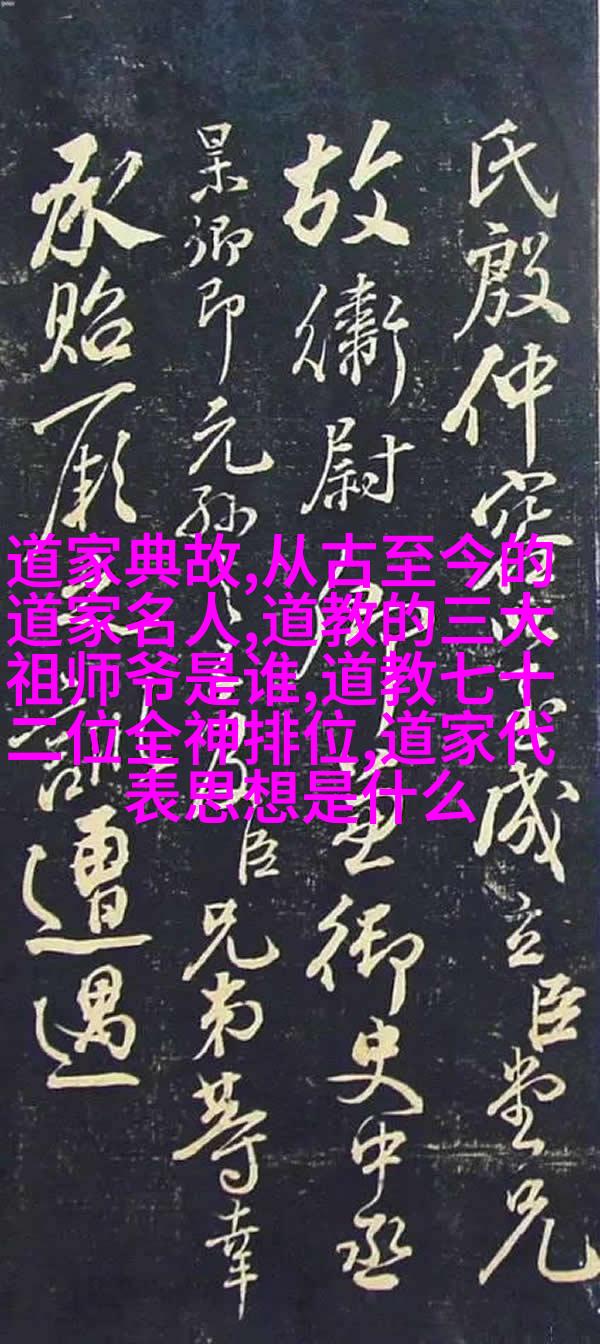 道家典故,从古至今的
道家名人,道教的三大
祖师爷是谁,道教七十
二位全神排位,道家代
表思想是什么
氏殷仲容成立臣堂兄
故衛尉卿兼御史中丞
杲卿即元孫臣兄弟等幸
承貽厥之訓遭遇